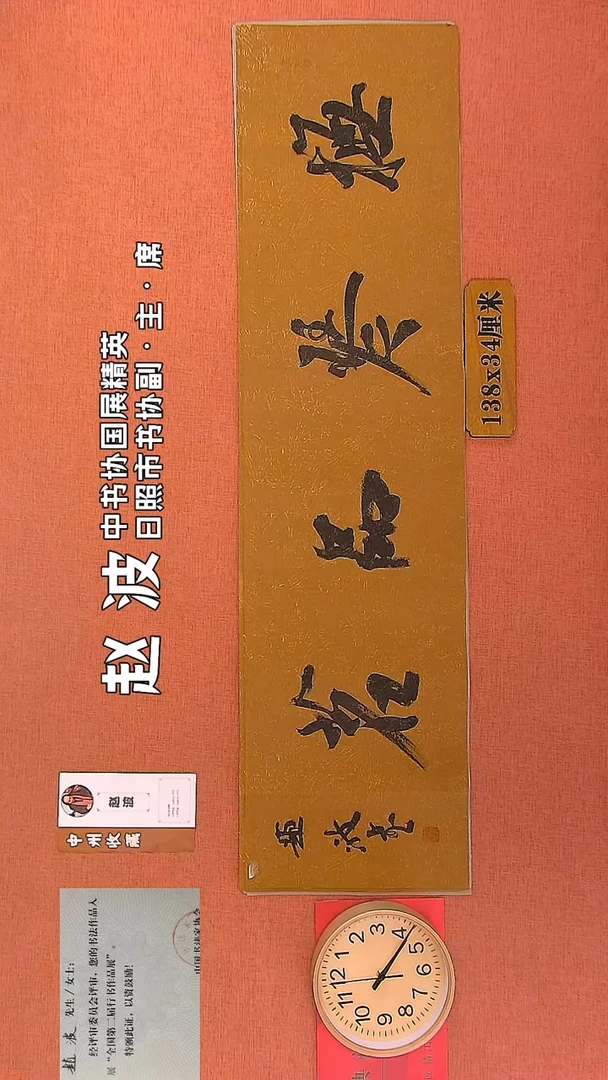 赵波
中书协国展精英
日照市书协副·主·席
品茗
赵波书
138x34厘米
赵波
中州收藏
赵波 先生/女士：
经评审委员会评审，您的书法作品入
展“全国第二届行书作品展”。
特颁此证，以资鼓励！
中国书法家协会
12
1
2
3
4
5
6
7
8
9
10
11